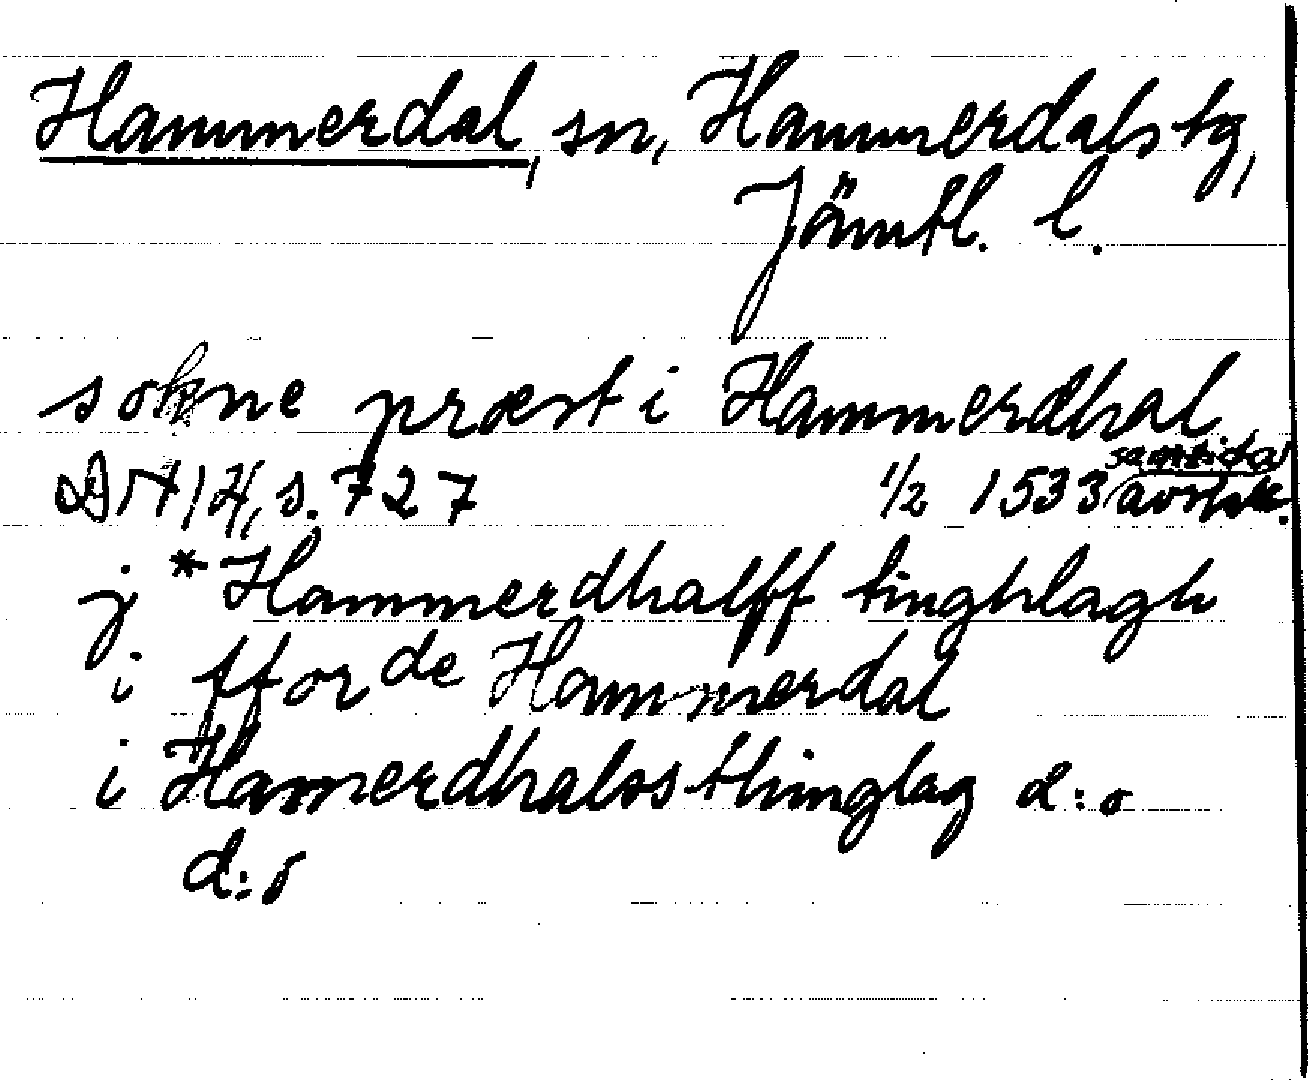 Hammerdal, sn, Hammerdals tg,
Jämtl. l.
sokne præst i Hammerdhal
DN 14, s. 727 1/2 1533 samtida avskr.
j *Hammerdhalff tinghlagh
i fforde Hammerdal
i Hamerdhalss thinglag d:o
d:o